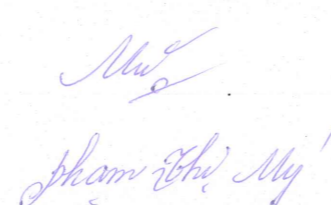 Phạm Thị Mỹ